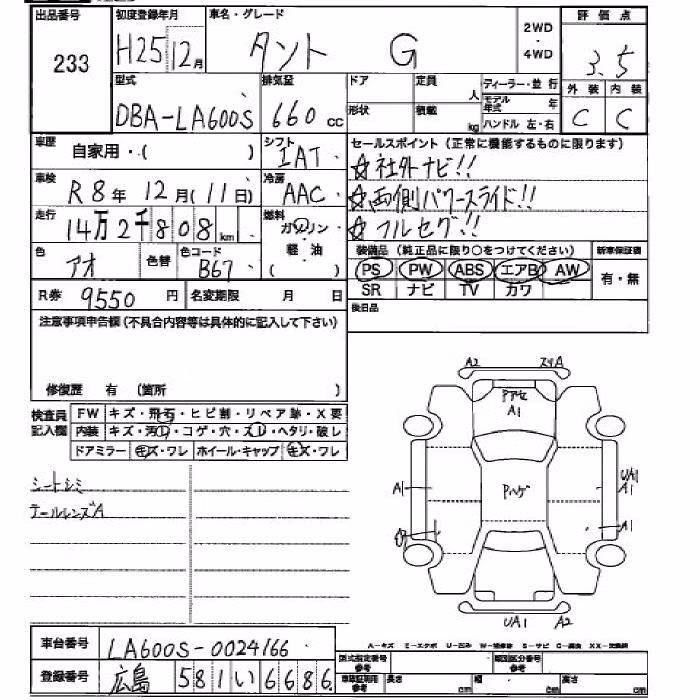 出品番号 初度登録年月 車名・グレード 2WD・4WD 評価点
233 H25 12月 タント G 3.5
型式 排気量 ドア 定員 人 ディーラー・並行 外装 内装
DBA-LA600S 660cc 形状 積載 kg モデル年式 年 ハンドル 左・右 C C
車歴 自家用・( ) シフト IAT セールスポイント(正常に機能するものに限ります)
☆社外ナビ!!
車検 R8年12月(11日) 冷房 AAC ☆両側パワースライド!!
走行 14万2千808km 燃料 ガソリン・軽油 ( ) ☆フルセグ!!
色 アオ 色替 色コード B67 装備品(純正品に限り○をつけてください) 新車保証書
PS PW ABS エアB AW 有・無
R券 9550円 名変期限 月 日 SR ナビ TV カワ
注意事項申告欄(不具合内容等は具体的に記入して下さい) 後日品
修復歴 有 (箇所 )
検査員記入欄 FW キズ・飛石・ヒビ割・リペア跡・X要
内装 キズ・汚レ・コゲ・穴・スレ・ヘタリ・破レ
ドアミラー キズ・ワレ ホイール・キャップ キズ・ワレ
シートシミ
テールレンズA
A2 スリA
Pアセ
A1
Pハゲ
A1
UA1
A1
A1
UA1 A2
A-キズ E-エクボ U-凹み W-補修跡 S-サビ C-腐食 XX-交換済
車台番号 LA600S-0024166
型式指定番号 参考 類別区分番号 参考
登録番号 広島 581 い 6686 車庫証明用 参考 長さ cm 幅 cm 高さ cm